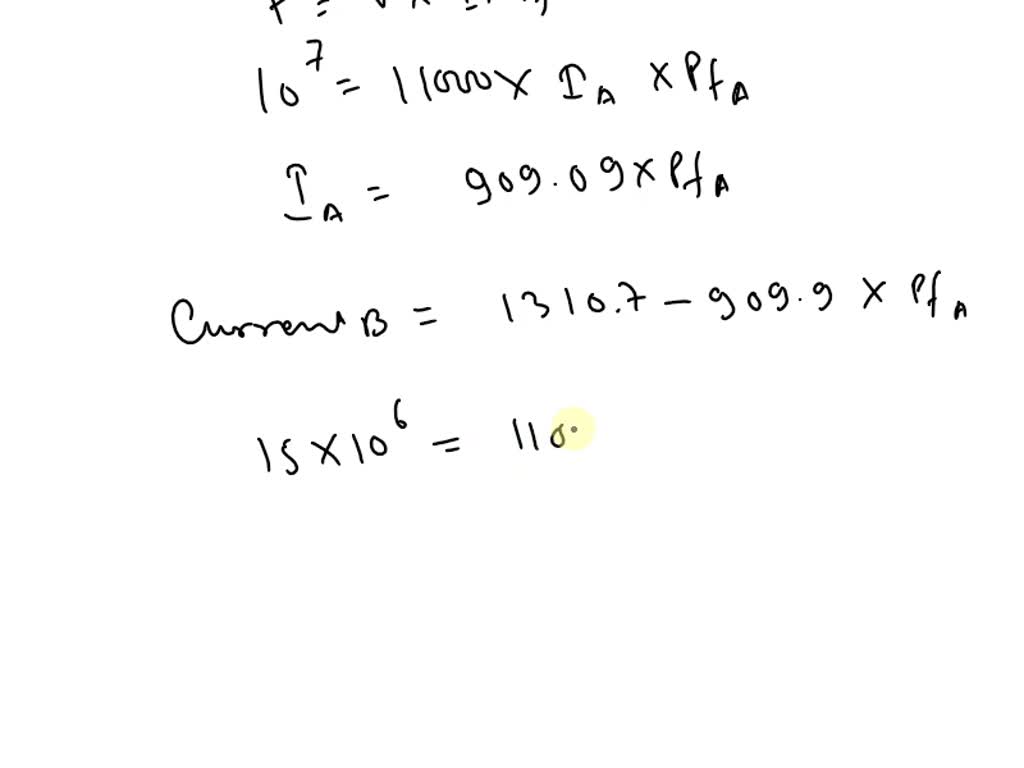 10^7 = 11000 x I_A x Pf_A
I_A = 909.09 x Pf_A
Current B = 1310.7 - 909.9 x Pf_A
15 x 10^6 = 110